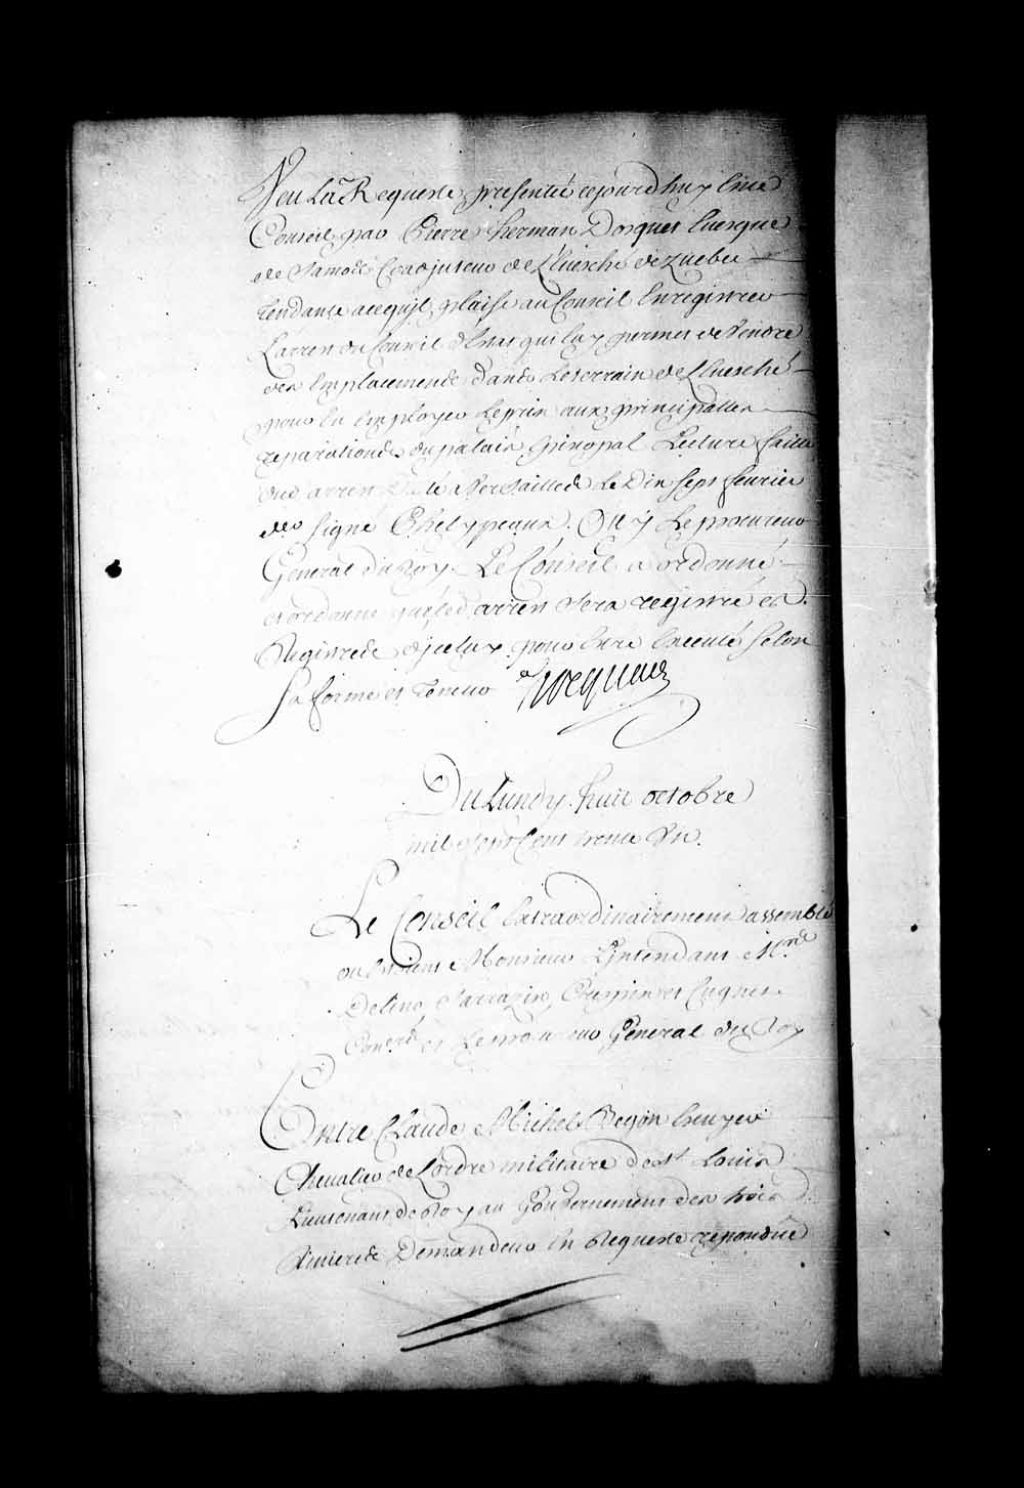 Veu La Requeste presentée cejourdhuy En ce
Conseil par Pierre herman Dosquet Euesque
de Samos Coadjuteur de L'Euesché de quebec
Tendante acequ'il plaise au Conseil Enregistrer
L'arrest du Conseil d'Estat qui luy permet de Vendre
des Emplacements dans Leterrain de L'Euesché
pour En Employer Leprix aux principalles
reparations du palais Episcopal Lecture faitte
dud arrest Datté a Versailles Le Dix sept feurier
signé Phelypeaux. Ouy Le procureur
General du Roy Le Conseil a ordonné
et ordonne que led arrest sera registré es
Registres d'jceluy pour Estre Executé selon
sa forme et Teneur Hocquart
Du Lundy huit octobre
mil sept Cent trente Un.
Le Conseil Extraordinairement assemblé
ou Estoient Monsieur L'Intendant Mrs
Delino, Sarrazin, Crespin et Cugnet
Coners et Leprocureur General du Roy
Entre Claude Michel Begon Ecuyer
Cheualier de L'ordre militaire de St Louis
Lieutenant de Roy au Gouvernement des trois
Riuieres Demandeur En Requeste repondüe